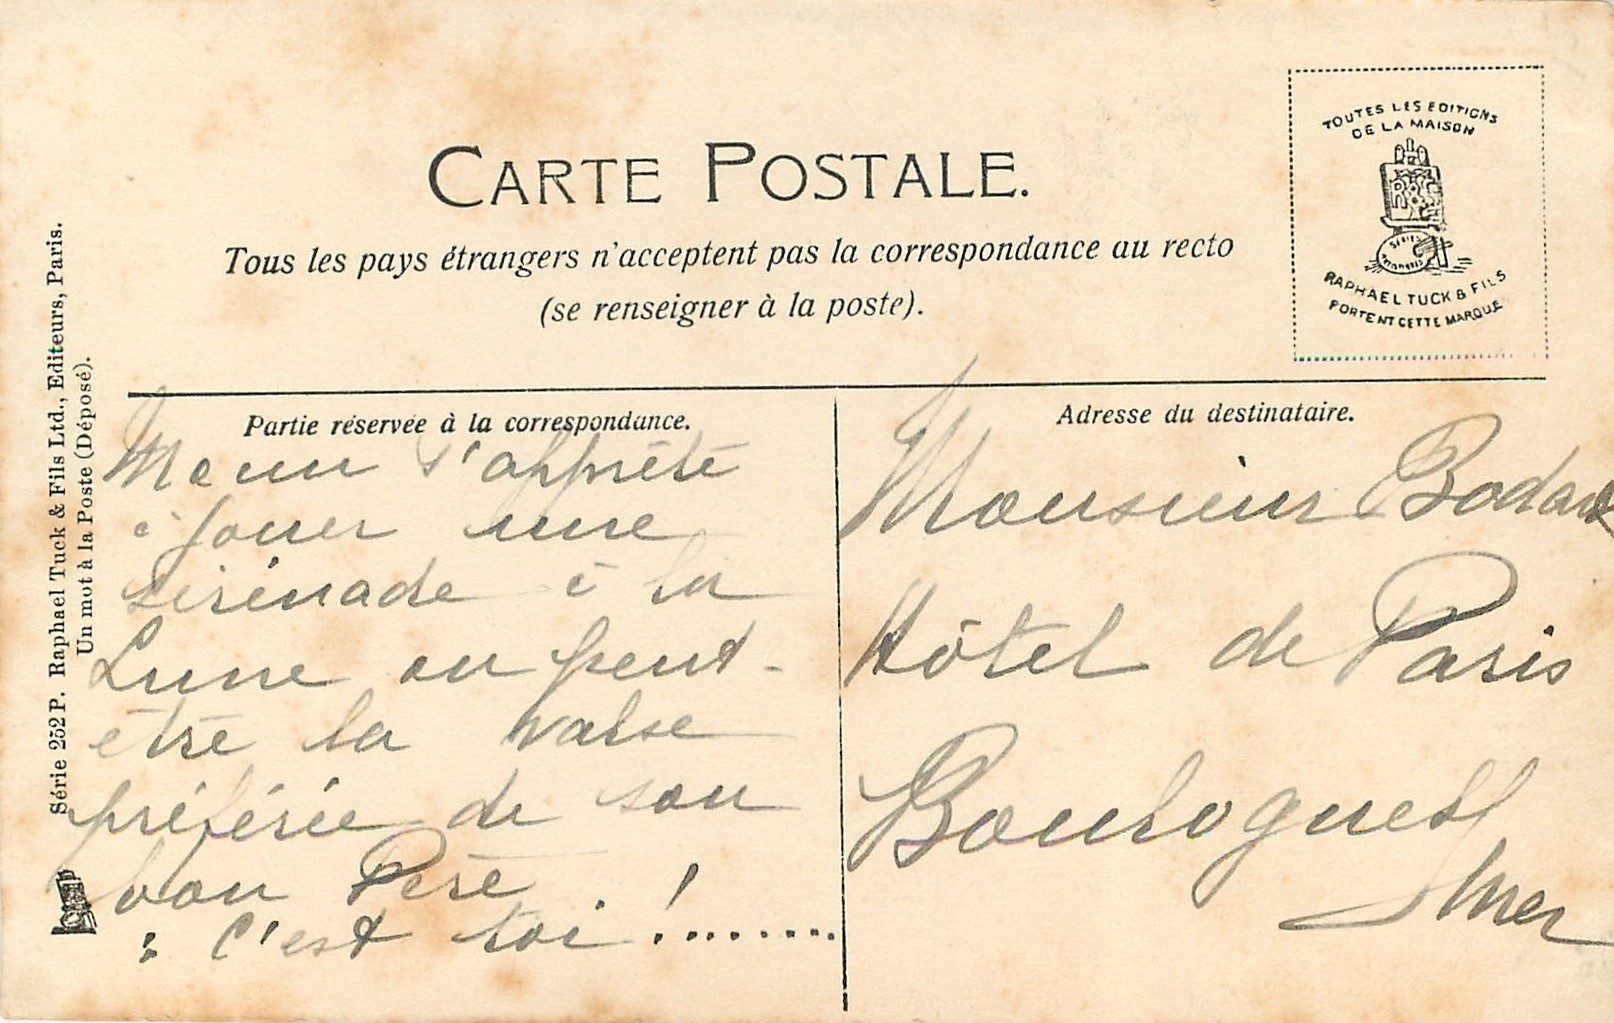 CARTE POSTALE.
Tous les pays étrangers n'acceptent pas la correspondance au recto
(se renseigner à la poste).
TOUTES LES EDITIONS
DE LA MAISON
RAPHAEL TUCK & FILS
PORTENT CETTE MARQUE
Série 252 P. Raphael Tuck & Fils Ltd., Editeurs, Paris.
Un mot à la Poste (Déposé).
Partie réservée à la correspondance.
s'apprête
à jouer une
sérénade à la
Lune ou peut-
être la valse
préférée de son
bon Père !
: C'est toi !........
Adresse du destinataire.
Monsieur
Hôtel de Paris
Boulogne s/
Mer